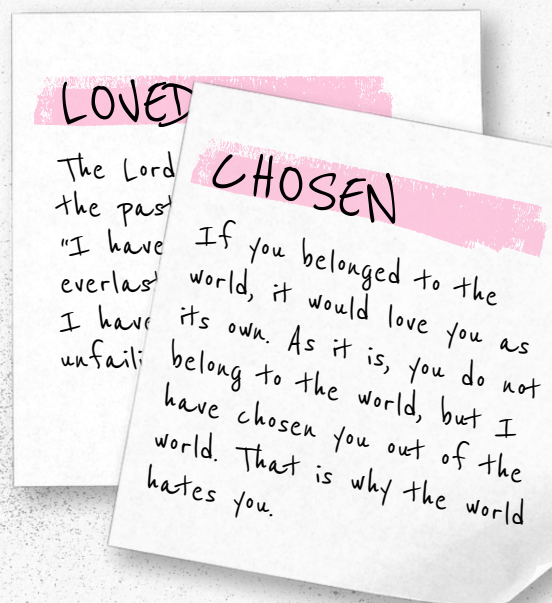 LOVED
The Lord
the past
"I have
everlast
I have
unfaili
CHOSEN
If you belonged to the
world, it would love you as
its own. As it is, you do not
belong to the world, but I
have chosen you out of the
world. That is why the world
hates you.